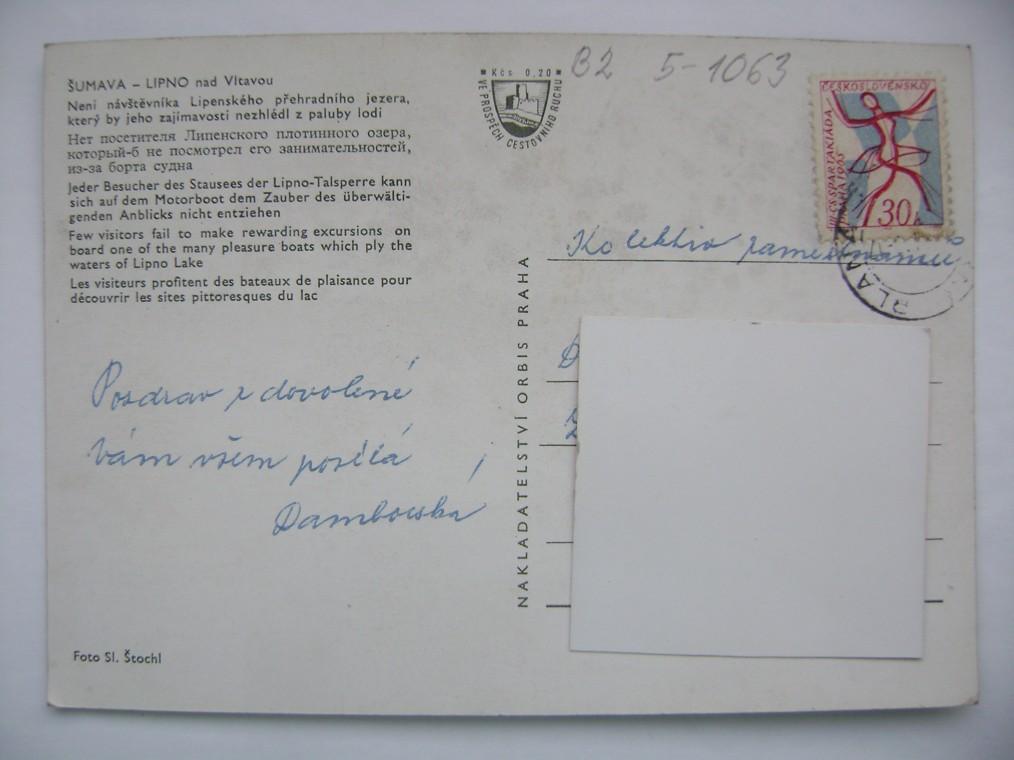 ŠUMAVA – LIPNO nad Vltavou
Není návštěvníka Lipenského přehradního jezera,
který by jeho zajímavosti nezhlédl z paluby lodi
Нет посетителя Липенского плотинного озера,
который-б не посмотрел его занимательностей,
из-за борта судна
Jeder Besucher des Stausees der Lipno-Talsperre kann
sich auf dem Motorboot dem Zauber des überwälti-
genden Anblicks nicht entziehen
Few visitors fail to make rewarding excursions on
board one of the many pleasure boats which ply the
waters of Lipno Lake
Les visiteurs profitent des bateaux de plaisance pour
découvrir les sites pittoresques du lac
Pozdrav z dovolené
vám všem posílá
Dambovská
Foto Sl. Štochl
NAKLADATELSTVÍ ORBIS PRAHA
Kčs 0,20
VE PROSPĚCH CESTOVNÍHO RUCHU
B2 5-1063
ČESKOSLOVENSKO
III. CS SPARTAKIÁDA
PRAHA 1965
30
Kolektiv zaměstnanců